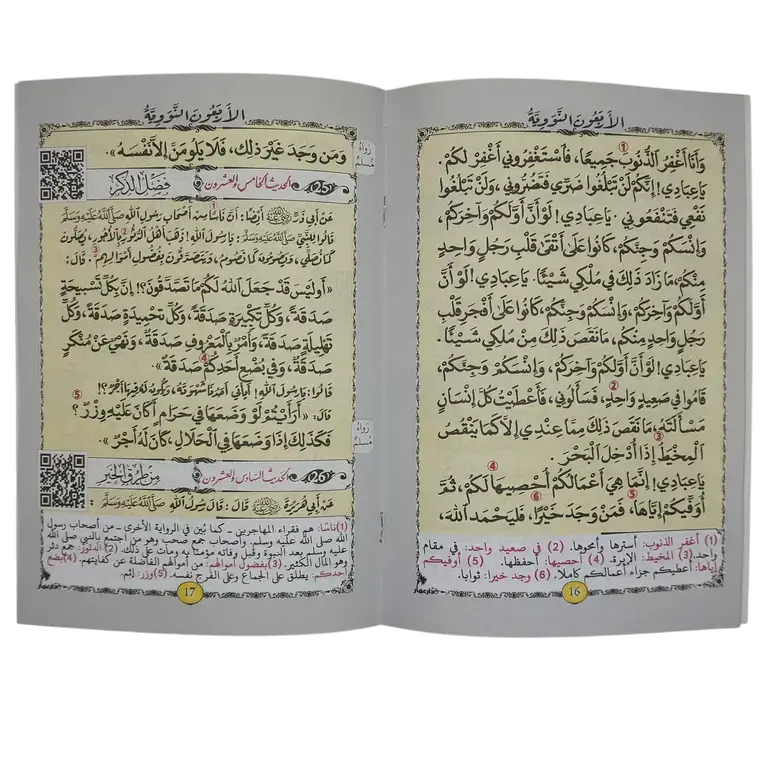 الأربعون النووية
وَأَنَا أَغْفِرُ الذُّنُوبَ جَمِيعًا (1)، فَاسْتَغْفِرُونِي أَغْفِرْ لَكُمْ.
يَا عِبَادِي! إِنَّكُمْ لَنْ تَبْلُغُوا ضَرِّي فَتَضُرُّونِي، وَلَنْ تَبْلُغُوا
نَفْعِي فَتَنْفَعُونِي. يَا عِبَادِي! لَوْ أَنَّ أَوَّلَكُمْ وَآخِرَكُمْ،
وَإِنْسَكُمْ وَجِنَّكُمْ، كَانُوا عَلَى أَتْقَى قَلْبِ رَجُلٍ وَاحِدٍ
مِنْكُمْ، مَا زَادَ ذَلِكَ فِي مُلْكِي شَيْئًا. يَا عِبَادِي! لَوْ أَنَّ
أَوَّلَكُمْ وَآخِرَكُمْ، وَإِنْسَكُمْ وَجِنَّكُمْ، كَانُوا عَلَى أَفْجَرِ قَلْبِ
رَجُلٍ وَاحِدٍ مِنْكُمْ، مَا نَقَصَ ذَلِكَ مِنْ مُلْكِي شَيْئًا.
يَا عِبَادِي! لَوْ أَنَّ أَوَّلَكُمْ وَآخِرَكُمْ، وَإِنْسَكُمْ وَجِنَّكُمْ،
قَامُوا فِي صَعِيدٍ وَاحِدٍ (2)، فَسَأَلُونِي، فَأَعْطَيْتُ كُلَّ إِنْسَانٍ
مَسْأَلَتَهُ، مَا نَقَصَ ذَلِكَ مِمَّا عِنْدِي إِلَّا كَمَا يَنْقُصُ
الْمِخْيَطُ (3) إِذَا أُدْخِلَ الْبَحْرَ.
يَا عِبَادِي! إِنَّمَا هِيَ أَعْمَالُكُمْ أُحْصِيهَا (4) لَكُمْ، ثُمَّ
أُوَفِّيكُمْ إِيَّاهَا (5)، فَمَنْ وَجَدَ خَيْرًا (6)، فَلْيَحْمَدِ اللهَ،
(1) أغفر الذنوب: أسترها وأمحوها. (2) في صعيد واحد: في مقام
واحد. (3) المخيط: الإبرة. (4) أحصيها: أحفظها. (5) أوفيكم
إياها: أعطيكم جزاء أعمالكم كاملا. (6) وجد خيرا: ثوابا.
16
الأربعون النووية
وَمَنْ وَجَدَ غَيْرَ ذَلِكَ، فَلَا يَلُومَنَّ إِلَّا نَفْسَهُ».
رواه
مسلم
(25) الحديث الخامس والعشرون
فضل الذكر
عَنْ أَبِي ذَرٍّ رضي الله عنه أَيْضًا: أَنَّ نَاسًا (1) مِنْ أَصْحَابِ رَسُولِ اللهِ صلى الله عليه وسلم
قَالُوا لِلنَّبِيِّ صلى الله عليه وسلم: يَا رَسُولَ اللهِ! ذَهَبَ أَهْلُ الدُّثُورِ (2) بِالْأُجُورِ، يُصَلُّونَ
كَمَا نُصَلِّي، وَيَصُومُونَ كَمَا نَصُومُ، وَيَتَصَدَّقُونَ بِفُضُولِ أَمْوَالِهِمْ (3). قَالَ:
«أَوَلَيْسَ قَدْ جَعَلَ اللهُ لَكُمْ مَا تَصَدَّقُونَ؟! إِنَّ بِكُلِّ تَسْبِيحَةٍ
صَدَقَةً، وَكُلِّ تَكْبِيرَةٍ صَدَقَةً، وَكُلِّ تَحْمِيدَةٍ صَدَقَةً، وَكُلِّ
تَهْلِيلَةٍ صَدَقَةً، وَأَمْرٍ بِالْمَعْرُوفِ صَدَقَةً، وَنَهْيٍ عَنْ مُنْكَرٍ
صَدَقَةً، وَفِي بُضْعِ أَحَدِكُمْ (4) صَدَقَةً».
قَالُوا: يَا رَسُولَ اللهِ! أَيَأْتِي أَحَدُنَا شَهْوَتَهُ، وَيَكُونُ لَهُ فِيهَا أَجْرٌ؟!
قَالَ: «أَرَأَيْتُمْ لَوْ وَضَعَهَا فِي حَرَامٍ أَكَانَ عَلَيْهِ وِزْرٌ (5)؟
فَكَذَلِكَ إِذَا وَضَعَهَا فِي الْحَلَالِ، كَانَ لَهُ أَجْرٌ».
رواه
مسلم
(26) الحديث السادس والعشرون
من طرق الخير
عَنْ أَبِي هُرَيْرَةَ رضي الله عنه قَالَ: قَالَ رَسُولُ اللهِ صلى الله عليه وسلم:
(1) ناسًا: هم فقراء المهاجرين - كما بُين في الرواية الأخرى - من أصحاب رسول
الله صلى الله عليه وسلم، وأصحاب جمع صحب وهو من اجتمع بالنبي صلى الله
عليه وسلم بعد النبوة وقبل وفاته مؤمنًا به ومات على ذلك. (2) الدثور: جمع دثر
وهو المال الكثير. (3) بفضول أموالهم: من أموالهم الفاضلة عن كفايتهم. (4) بضع
أحدكم: يطلق على الجماع وعلى الفرج نفسه. (5) وزر: إثم.
17